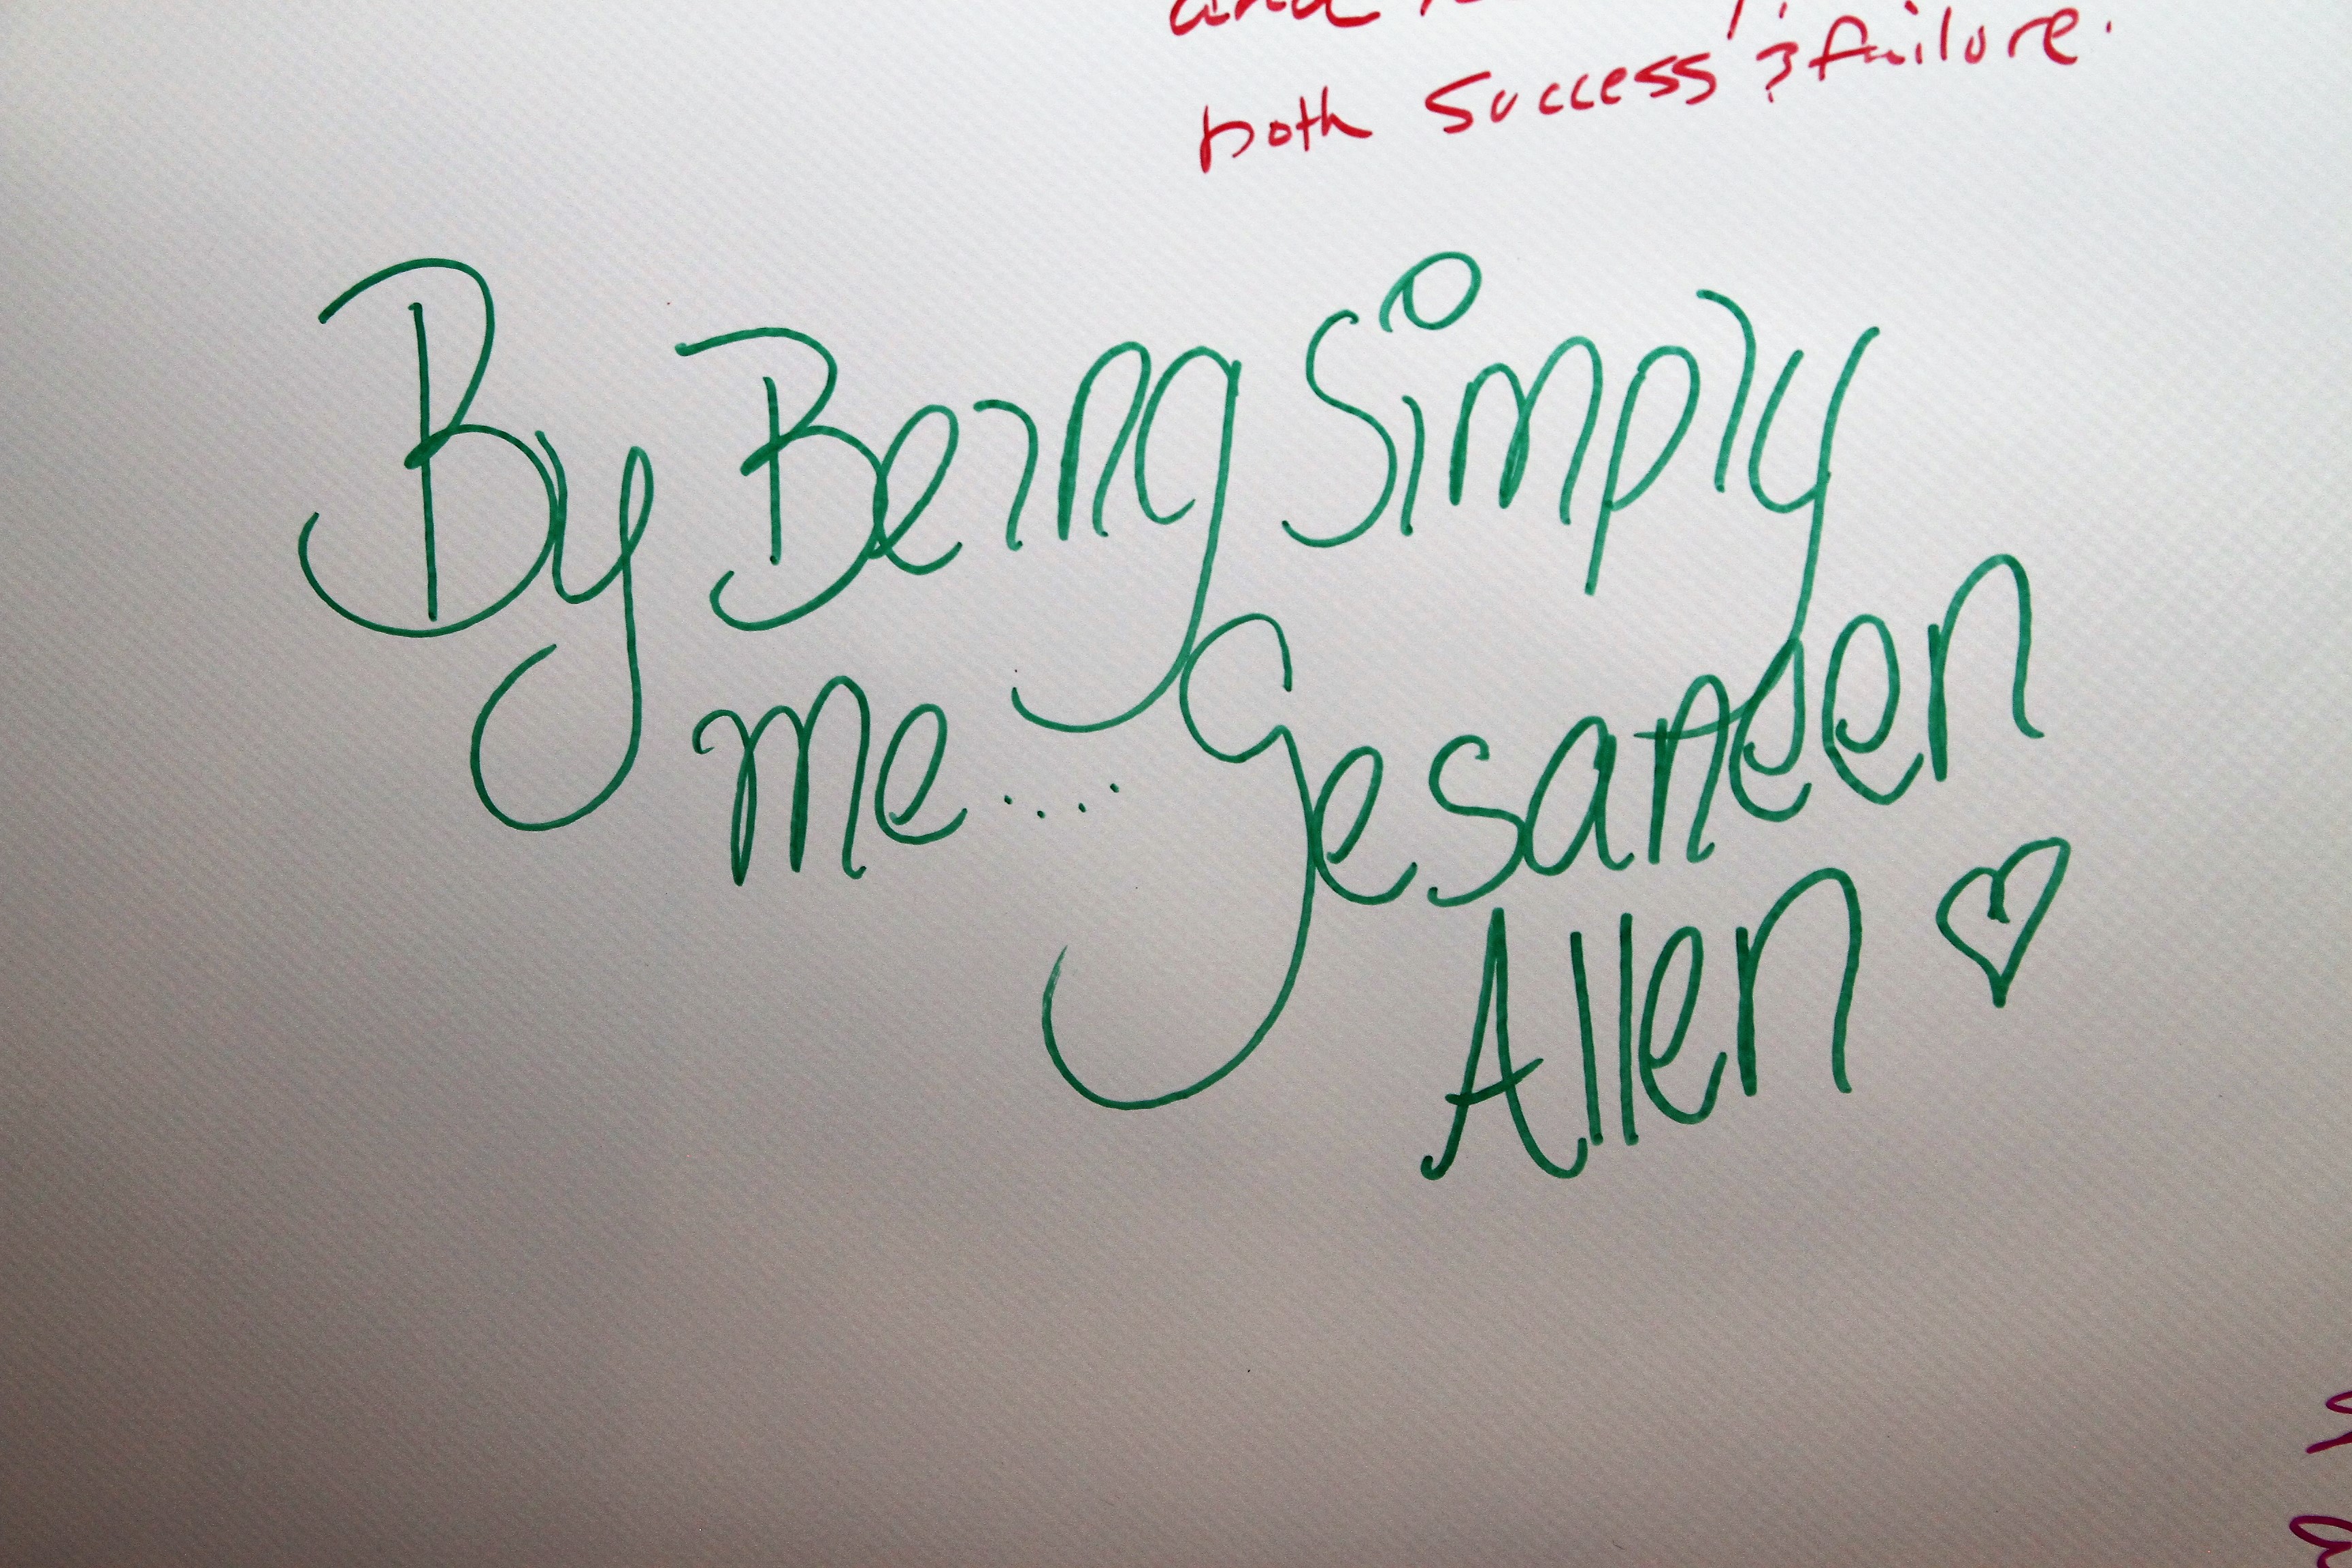 and
both success & failure.
By Being Simply
me.... Gesaneen
Allen ♡